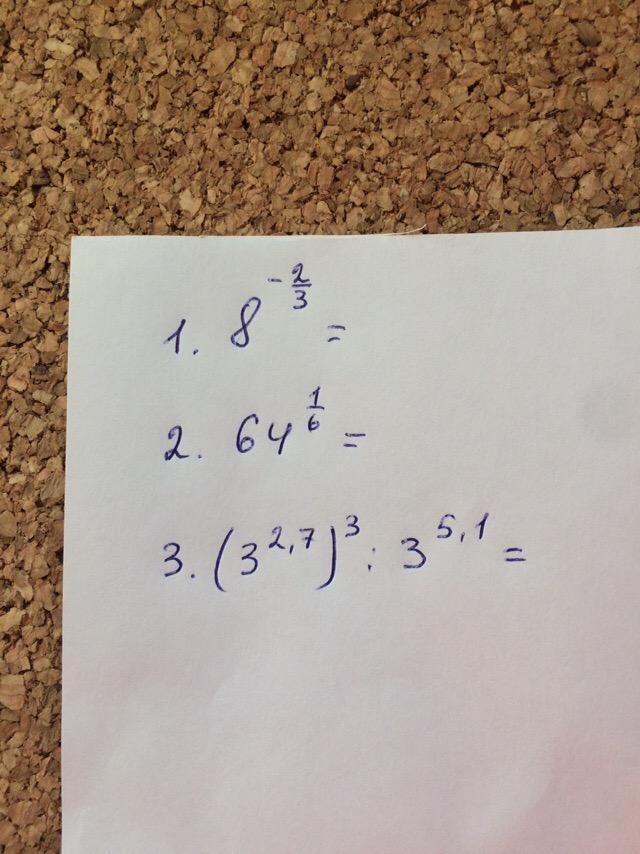 1. 8^{-\frac{2}{3}} =
2. 64^{\frac{1}{6}} =
3. (3^{2,7})^{3} : 3^{5,1} =